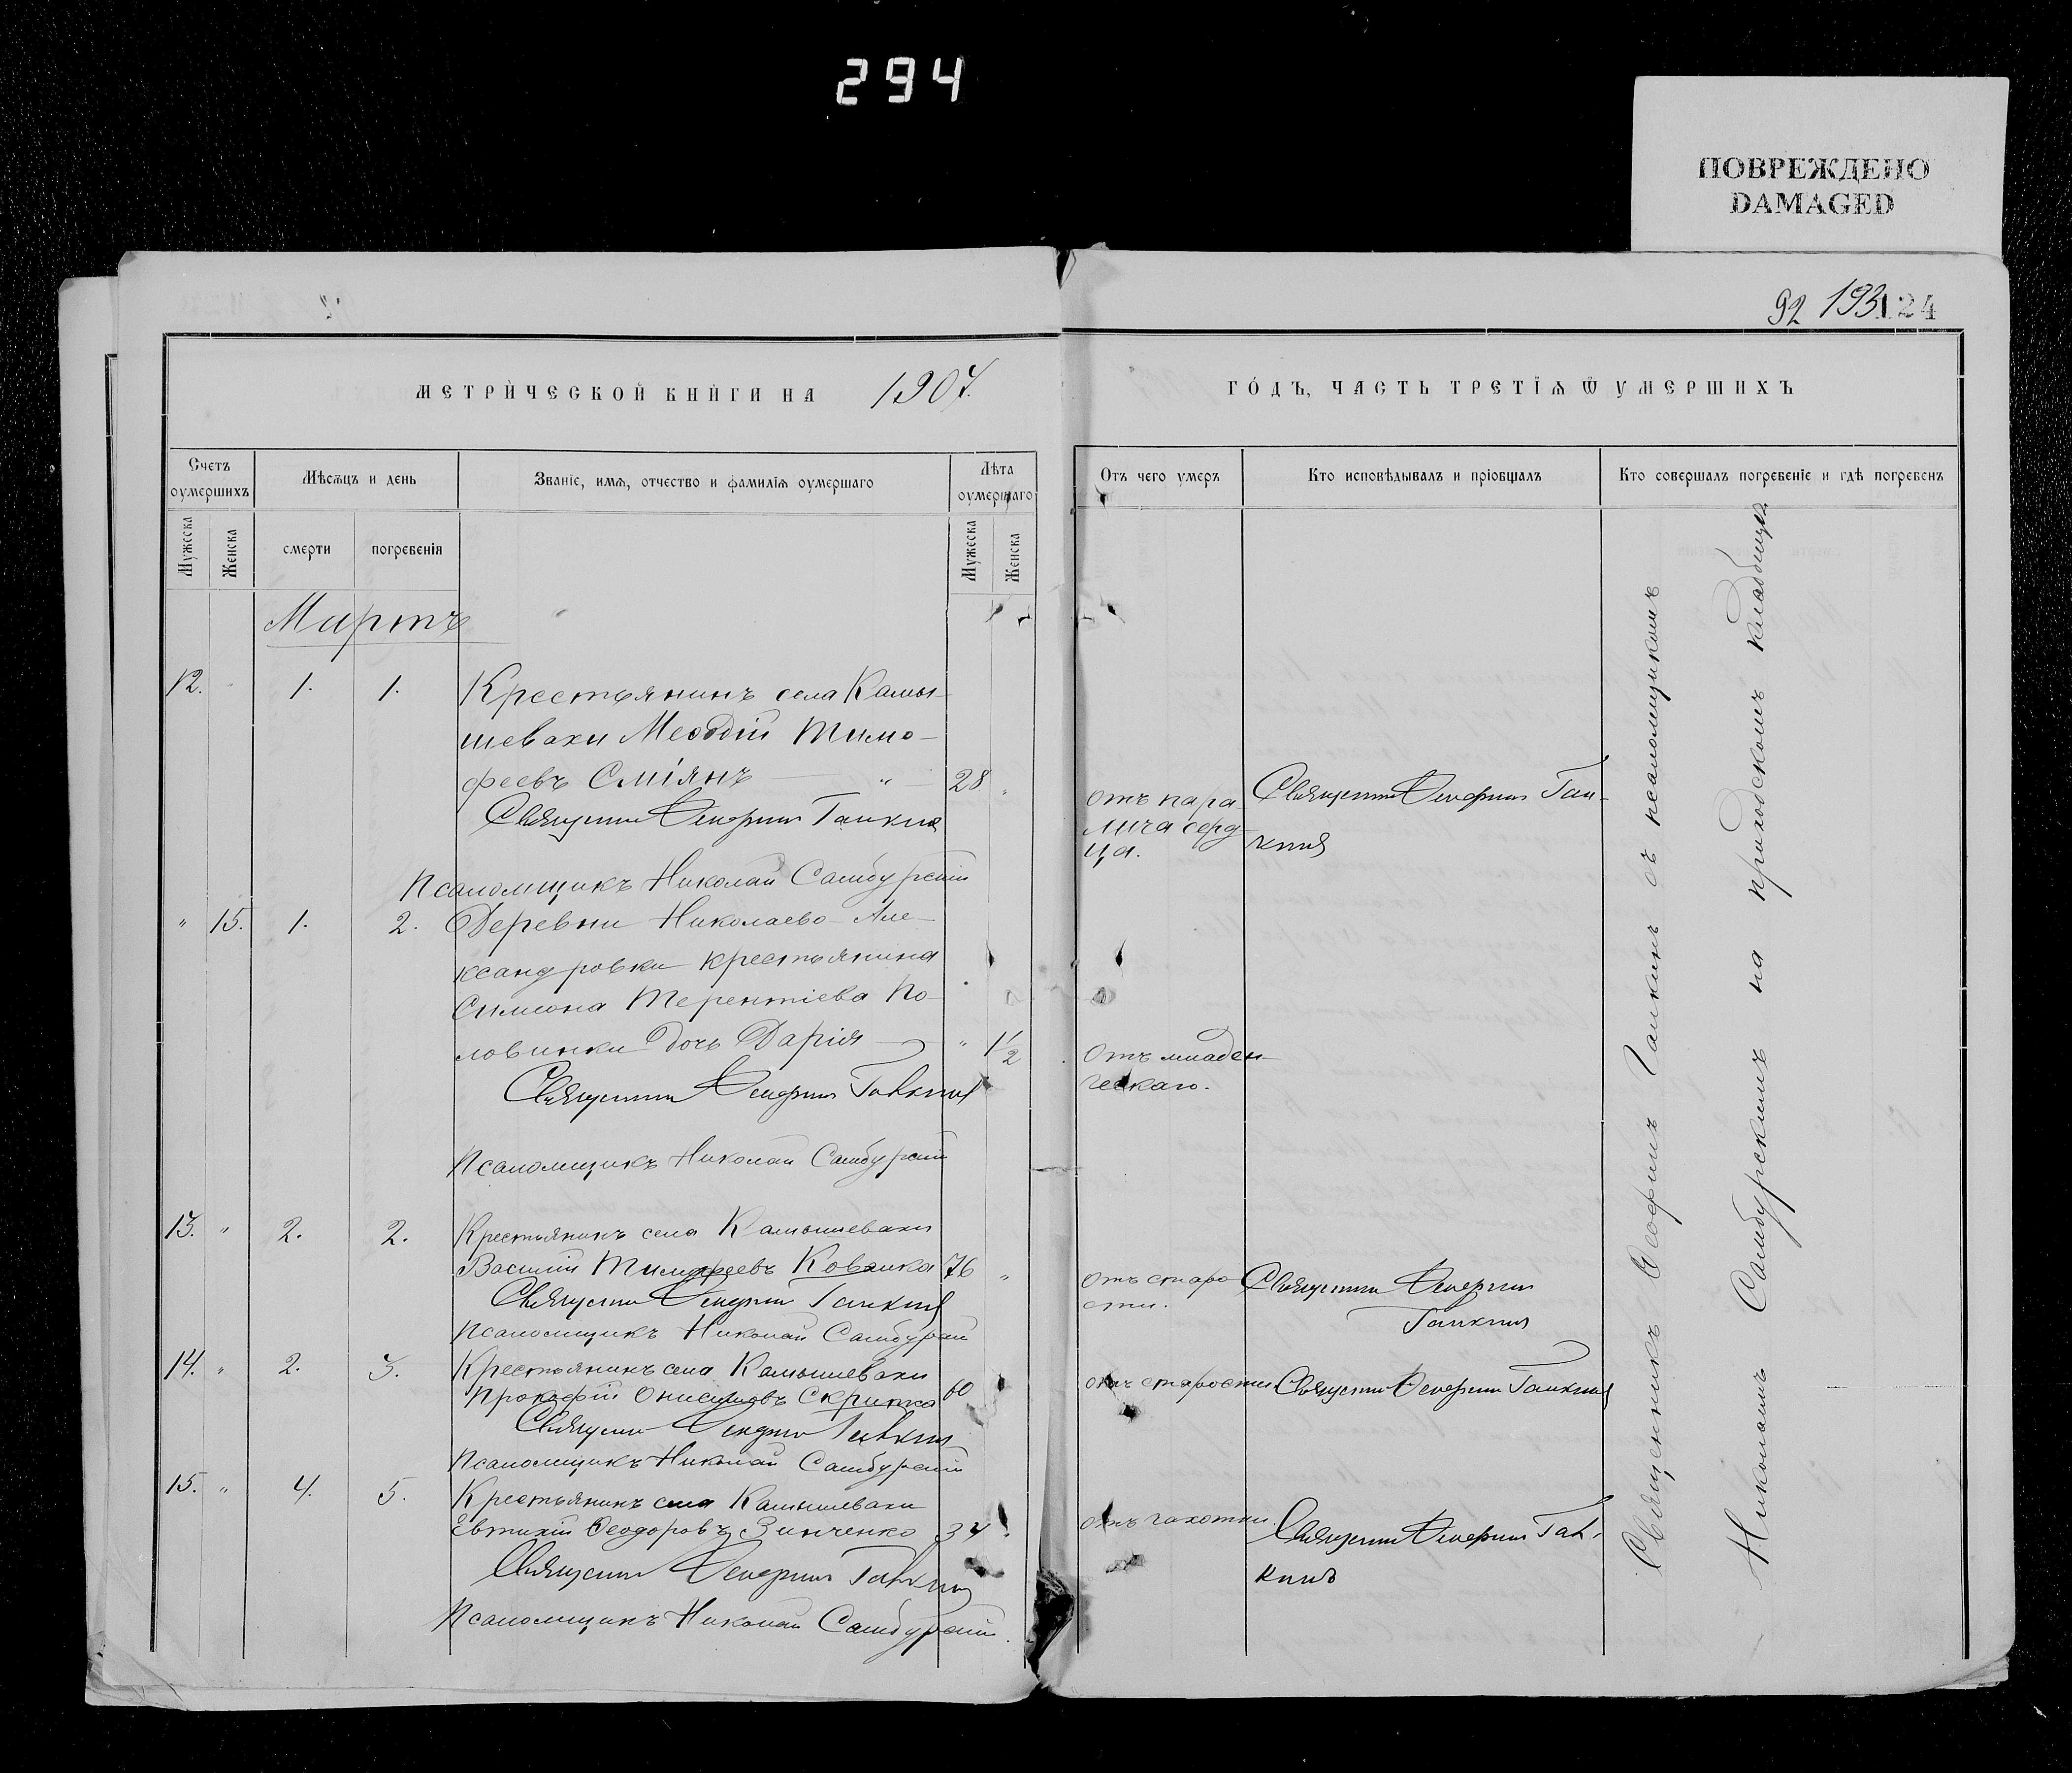 294
ПОВРЕЖДЕНО
DAMAGED
92 193 124
МЕТРИЧЕСКОЙ КНИГИ НА 1907. ГОДЪ, ЧАСТЬ ТРЕТІѦ Ѿ УМЕРШИХЪ
Счетъ оумершихъ
Мѣсѧцъ и день
Званіе, имѧ, отчество и фамиліѧ оумершаго
Лѣта оумершаго
Отъ чего умеръ
Кто исповѣдывалъ и пріобщалъ
Кто совершалъ погребеніе и гдѣ погребенъ
Мужеска
Женска
смерти
погребенія
Мужеска
Женска
Мартъ
12. 1. 1. Крестьянинъ села Камы-
шевахи Меѳодій Тимо-
феевъ Сміянъ 28
Священникъ Ѳеофилъ Галкинъ
Псаломщикъ Николай Самбурскій
отъ пара-
лича серд-
ца.
Священникъ Ѳеофилъ Гал-
кинъ
" 15. 1. 2. Деревни Николаево-Але-
ксандровки крестьянина
Симеона Терентіева По-
ловинки дочь Дарія " 1 1/2
Священникъ Ѳеофилъ Галкинъ
Псаломщикъ Николай Самбурскій
Отъ младен-
ческаго.
13. " 2. 2. Крестьянинъ села Камышевахи
Василій Тимофеевъ Ковалко 76 "
Священникъ Ѳеофилъ Галкинъ
Псаломщикъ Николай Самбурскій
Отъ старо-
сти.
Священникъ Ѳеофилъ
Галкинъ
14. " 2. 3. Крестьянинъ села Камышевахи
Прокофій Онисимовъ Скрипка 60
Священникъ Ѳеофилъ Галкинъ
Псаломщикъ Николай Самбурскій
отъ старости
Священникъ Ѳеофилъ Галкинъ
15. " 4. 5. Крестьянинъ села Камышевахи
Евтихій Ѳеодоровъ Зинченко 34
Священникъ Ѳеофилъ Галкинъ
Псаломщикъ Николай Самбурскій.
отъ чахотки.
Священникъ Ѳеофилъ Гал-
кинъ
Священникъ Ѳеофилъ Галкинъ съ псаломщикомъ
Николаемъ Самбурскимъ на приходскомъ кладбищѣ